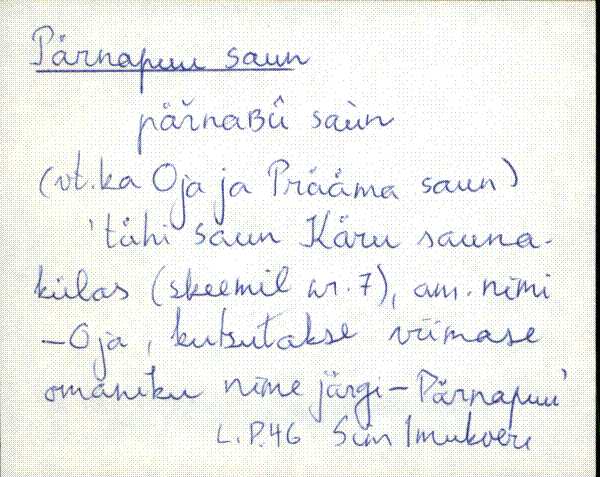 Pärnapuu saun
pär̆naʙû saùn
(vt. ka Oja ja Prääma saun)
'tühi saun Käru sauna-
külas (skeemil nr. 7), am. nimi
- Oja, kutsutakse viimase
omaniku nime järgi - Pärnapuu'
L.P. 46 Sim Imukvere